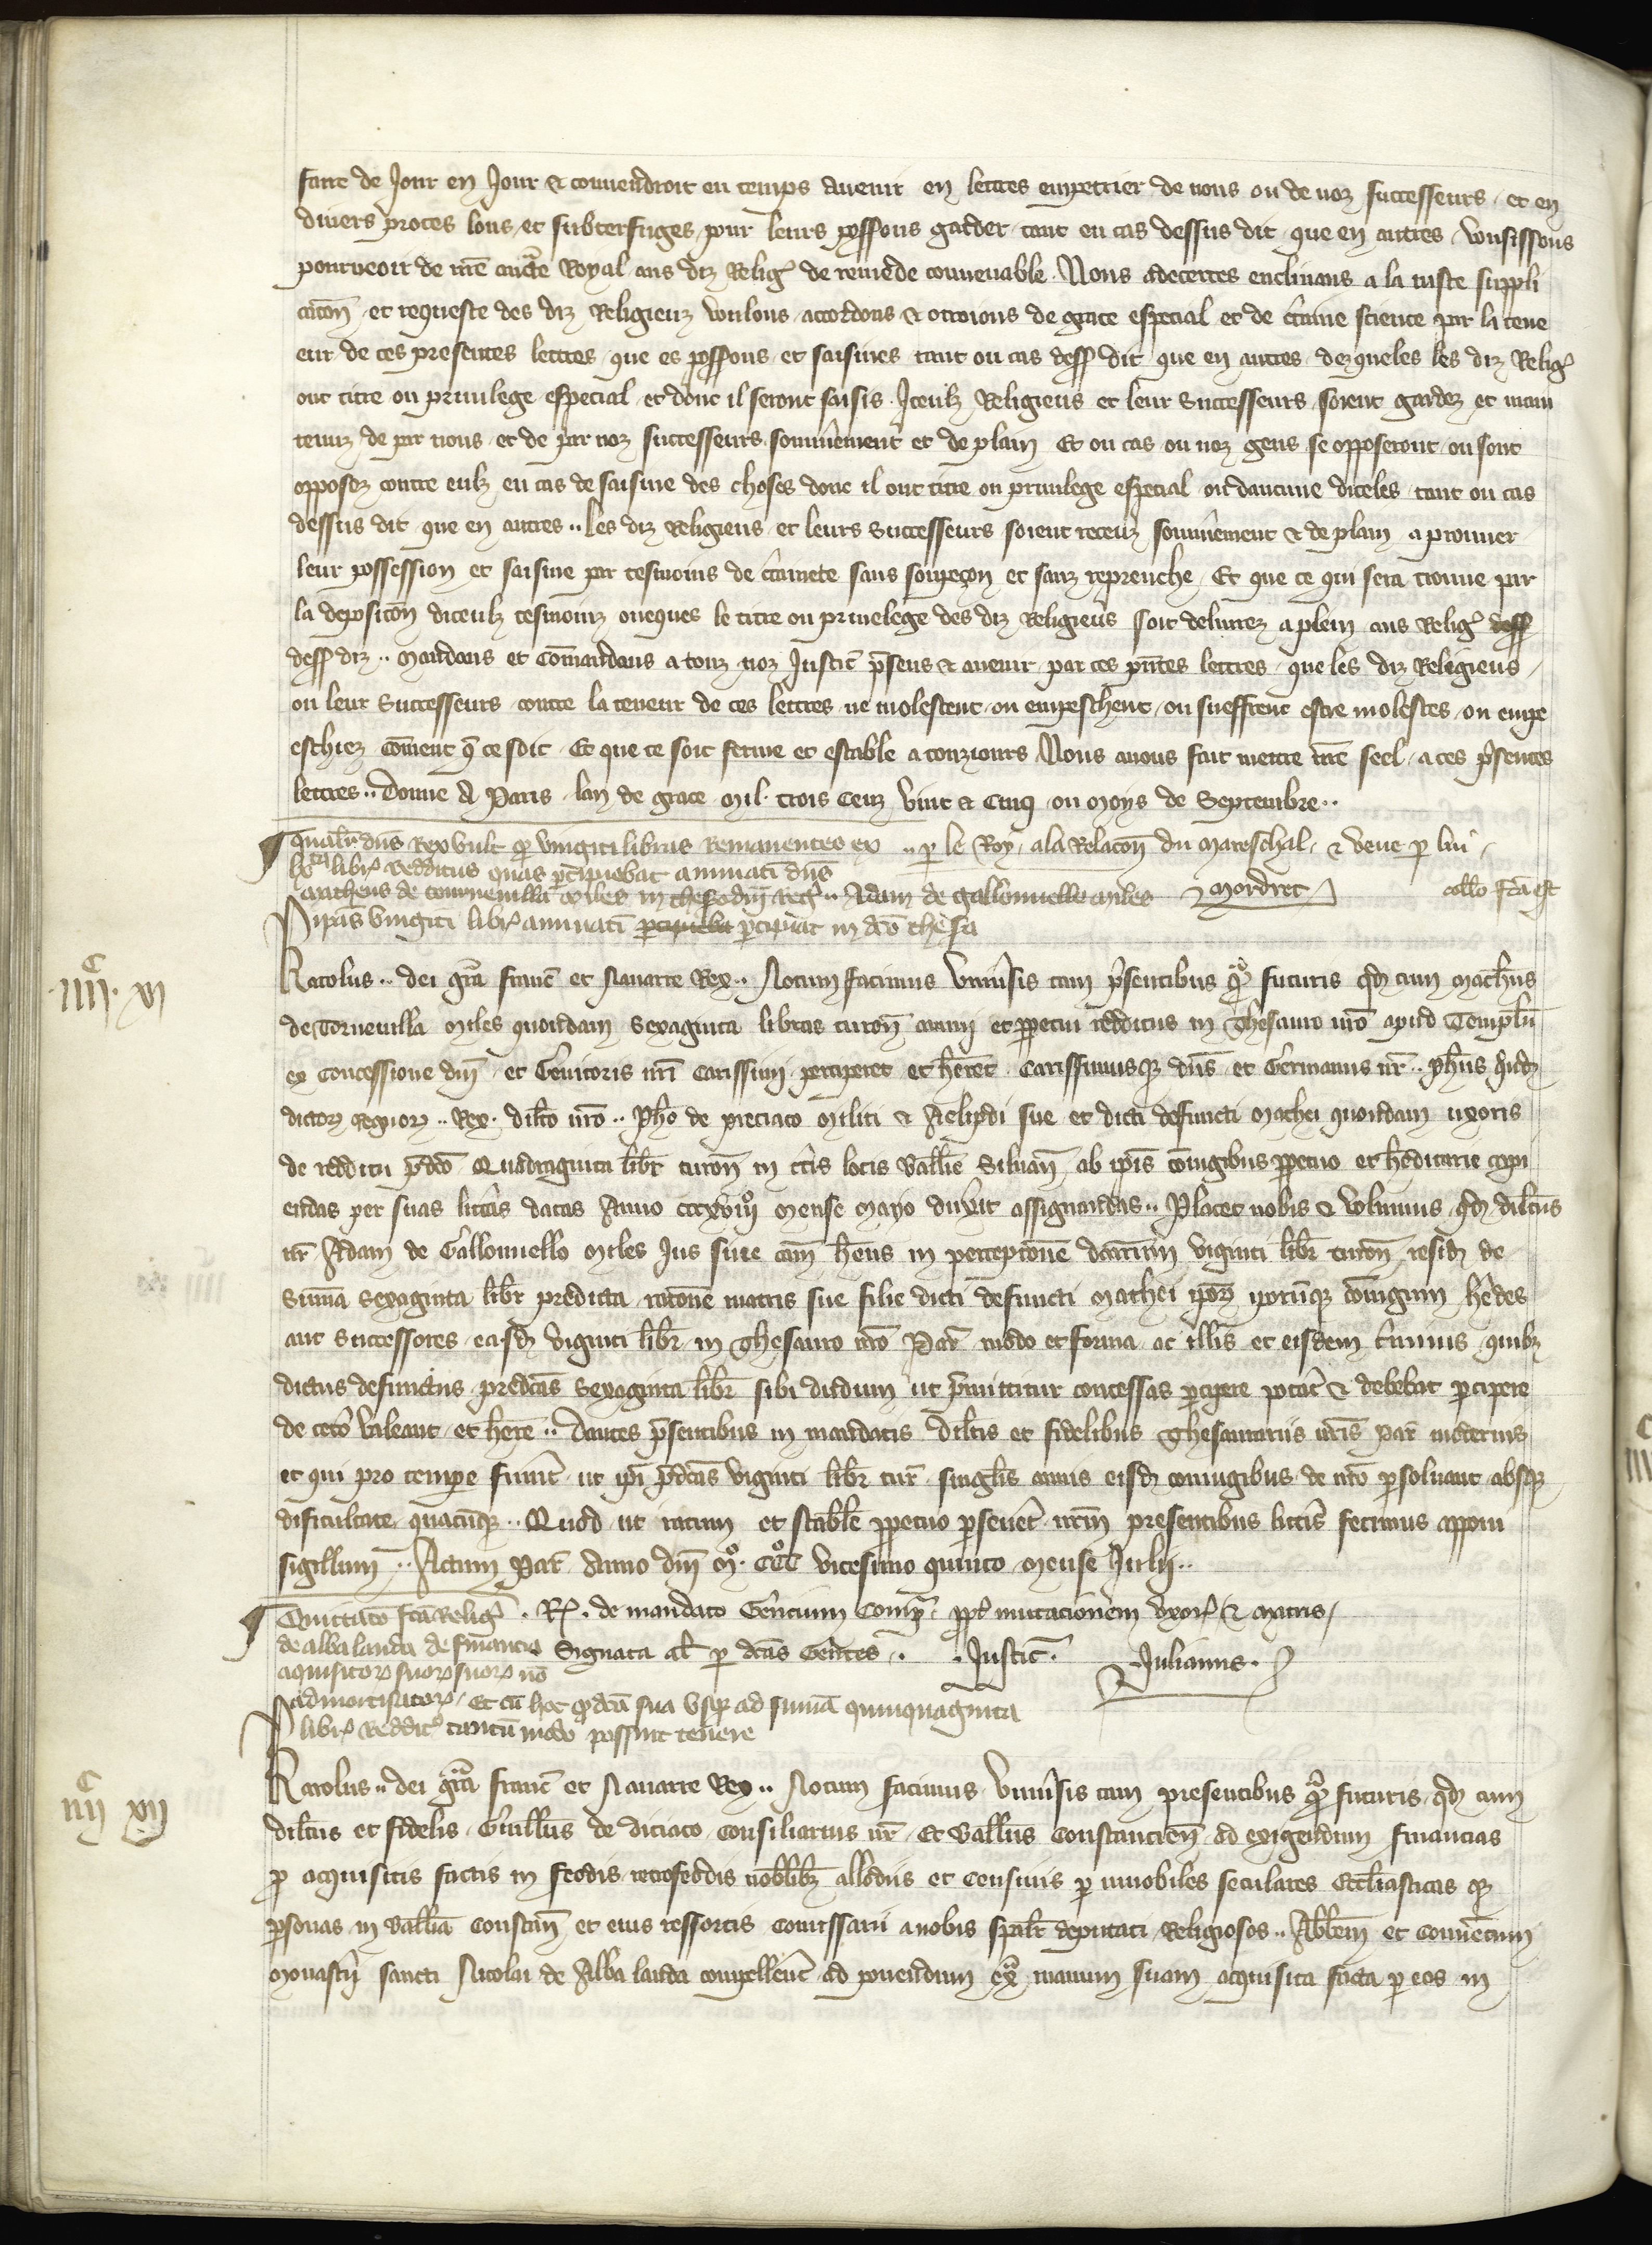 fait de Jour en Jour & convendroit en temps avenir en lettres empetrer de nous ou de noz successeurs et en
divers proces lons et subterfuges pour leurs possons garder tant en cas dessus dit que en autres vousissons
pourveoir de nrē aucte Royal aus diz Relig de remede convenable. Nous adecertes enclinans a la iuste suppli
cacōn et requeste des diz Religieuz voulons accordons & otroions de grace especial et de c̄taine science par la tene
eur de ces presentes lettres que es possons et saisines tant ou cas dess dit que en autres dezqueles les diz Relig
ont titre ou privilege especial et dont il seront saisis. Iceulz Religieus et leur Successeurs soient gardez et main
tenuz de par nous et de par noz successeurs sommēment et de plain Et ou cas ou noz gens se opposeront ou sont
opposez contre eulz en cas de saisine des choses donc il ont titre ou privilege especial ou daucune diceles tant ou cas
dessus dit que en autres .. les diz Religieus et leurs Successeurs soient receuz sommēment & de plain a prouver
leur possession et saisine par tesmoins de c̄tainete sans soupeçon et sanz reprenche Et que ce qui sera trouve par
la deposicōn diceulz tesmoinz oveques le titre ou privelege des diz Religieus soit delivrez a plein aus Relig dess
dess diz .. Mandons et Cōmandons a touz noz Justic p̄sens & avenir par ces p̄ntes lettres que les diz Religieus
ou leur Successeurs contre la teneur de ces lettres ne molestent ou empeschent ou sueffrent estre molestes ou empe
eschiez cōment q̄ ce soit Et que ce soit ferme et estable a touziours Nous avons fait mettre nrē seel a ces p̄sentes
lettres .. Donne A Paris lan de grace Mil trois Cenz vint & Cinq ou Moys de Septembre ..
Qualit̄ dn̄s Rex vult q̄ viginti libras Remanentes ex .. p̄ le Roy a la Relacōn du Mareschal & veue p̄ lui
lxta libr Redditus quas p̄cipiebat annuatī dn̄s
Matheus de tournevilla Miles in thesō dn̄i Reḡ .. Adam de gallonnello miles Mordret coll̄o fcā est
ip̄as viginti libr annuatī p̄cipiebat p̄cipiat in dcō thesa
IIIIc XI
Karolus .. dei grā Franc̄ et Navarre Rex .. Notum facimus univ̄sis tam p̄sentibus q̄ futuris qd̄ cum Math̄us
de Tornevilla Miles quondam Sexaginta libras turon̄ annui et p̄petui redditus in Thesauro nrō apud Templū
ex Concessione dn̄i et Gēnitoris nrī Carissimi perciperet et hērēt Carissimusq̄ dn̄s et Gērmanus nr̄ .. Ph̄us q̄nd̄
dictorʒ regnorʒ .. Rex. dilc̄o nrō .. Ph̄o de preciaco Militi & Aelipdi sue et dicti defuncti Mathei quondam uxoris
de redditu p̄dc̄o Quadraginta libr̄ turon̄ in c̄tis locis Ballīe Silvan̄ ab ip̄is cōiugibus p̄petuo et h̄editarie capi
endas per suas litt̄as datas Anno cccxviijo Mense Mayo duxit assignandas .. Placet nobis & volumus qd̄ dilc̄us
nr̄ Adam de Gallonnello Miles Jus sive cām hn̄s in percepcionē dcārum viginti libr̄ turon̄ resid̄ de
Summa Sexaginta libr̄ predicta racōne matris sue filie dicti defuncti Mathei ip̄orʒ ip̄orūq̄ cōiugum h̄edes
aut Successores easd̄ viginti libr̄ in Thesauro nrō Par̄ modo et forma ac illis et eisdem t̄minis quibʒ
dictus defunctus predcās Sexaginta libr̄ sibi dudum ut p̄mittitur concessas p̄cipere potāt & debebat p̄cipere
de cet̄o valeant et hēre .. Dantes p̄sentibus in mandatis dilc̄is et fidelibus Thesaurariis nrīs Par̄ modernis
et qui pro tempe fuīnt ut ip̄i p̄dcās viginti libr̄ tur̄ singl̄is annis eisd̄ coniugibus de nrō p̄solvant absq̄
dificultate quacūq̄ .. Quod ut ratum et stabīle p̄petuo p̄sevēt nrm̄ presentibus litt̄is fecimus apponi
sigillum .. Actum Par̄ Anno dn̄i Mo. CCCo vicesimo quinto Mense Julii ..
Quittacō fcā Reliḡ . Rx̄ . de mandato Gēncium Comp̄ . ppt̄ mutacionem uxor̄ & Matris
de alba landa de financia Signata al̄ p̄ dcās Gēntes .. . Justic̄ . Julianus.
aquisitorʒ suorʒ suorʒ nō
admortisatorʒ Et cū hoc q̄ dcā sua usq̄ ad sumā quinquaginta
libr̄ Reddit̄ tantū modo possint tenere
IIIIc XII
Karolus .. dei grā Franc̄ et Navarre Rex .. Notum facimus univ̄sis tam presentibus q̄ futuris qd̄ cum
dilc̄us et fidelis Guill̄us de diciaco Consiliarius nr̄ Et Ballīus Constancien̄ ad exigendum financias
p̄ acquisitis factis in feodis retrofeodis nobīlibʒ allodiis et censivis p̄ innobiles seculares Ecc̄liasticas q̄
p̄sonas in Ballīa Constan̄ et eius ressortis Comissarii a nobis sp̄alīt deputati Religiosos .. Abb̄em et Conventum
Monast̄ii sancti Nicolai de Alba landa compellerēt ad ponendum ex̄ manum suam acquisita facta p̄ eos in